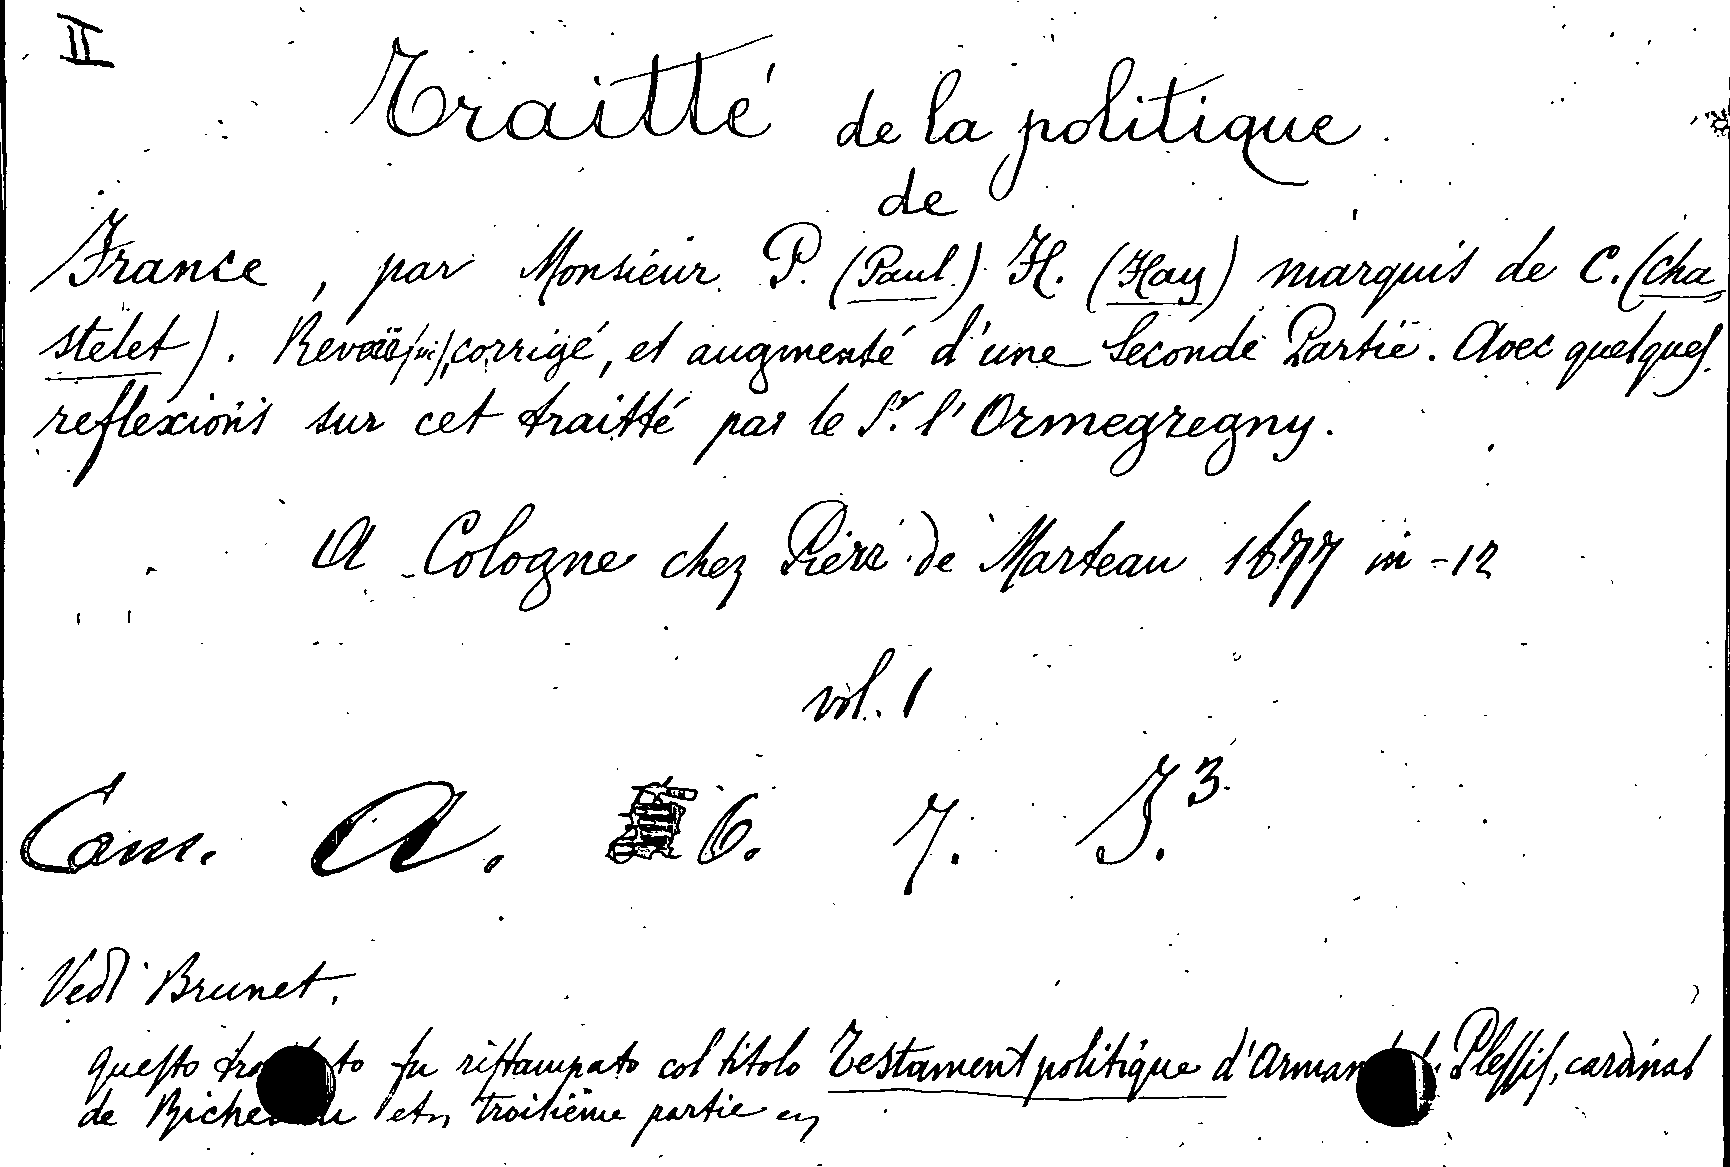 II
Traitté de la politique
de
France, par Monsieur P. (Paul) H. (Hay) marquis de C. (Cha=
stelet). Reveü (sic), corrigé, et augmenté d'une Seconde Partie. Avec quelques
reflexions sur cet traitté par le Sr. l'Ormegregny.
A Cologne chez Pierre de Marteau 1677 in-12
vol. 1
Cam. A. 6. 7. J.3
Vedi Brunet.
questo to fu ristampato col titolo Testament politique d'Armand Plessis, cardinal
de etc. troisième partie